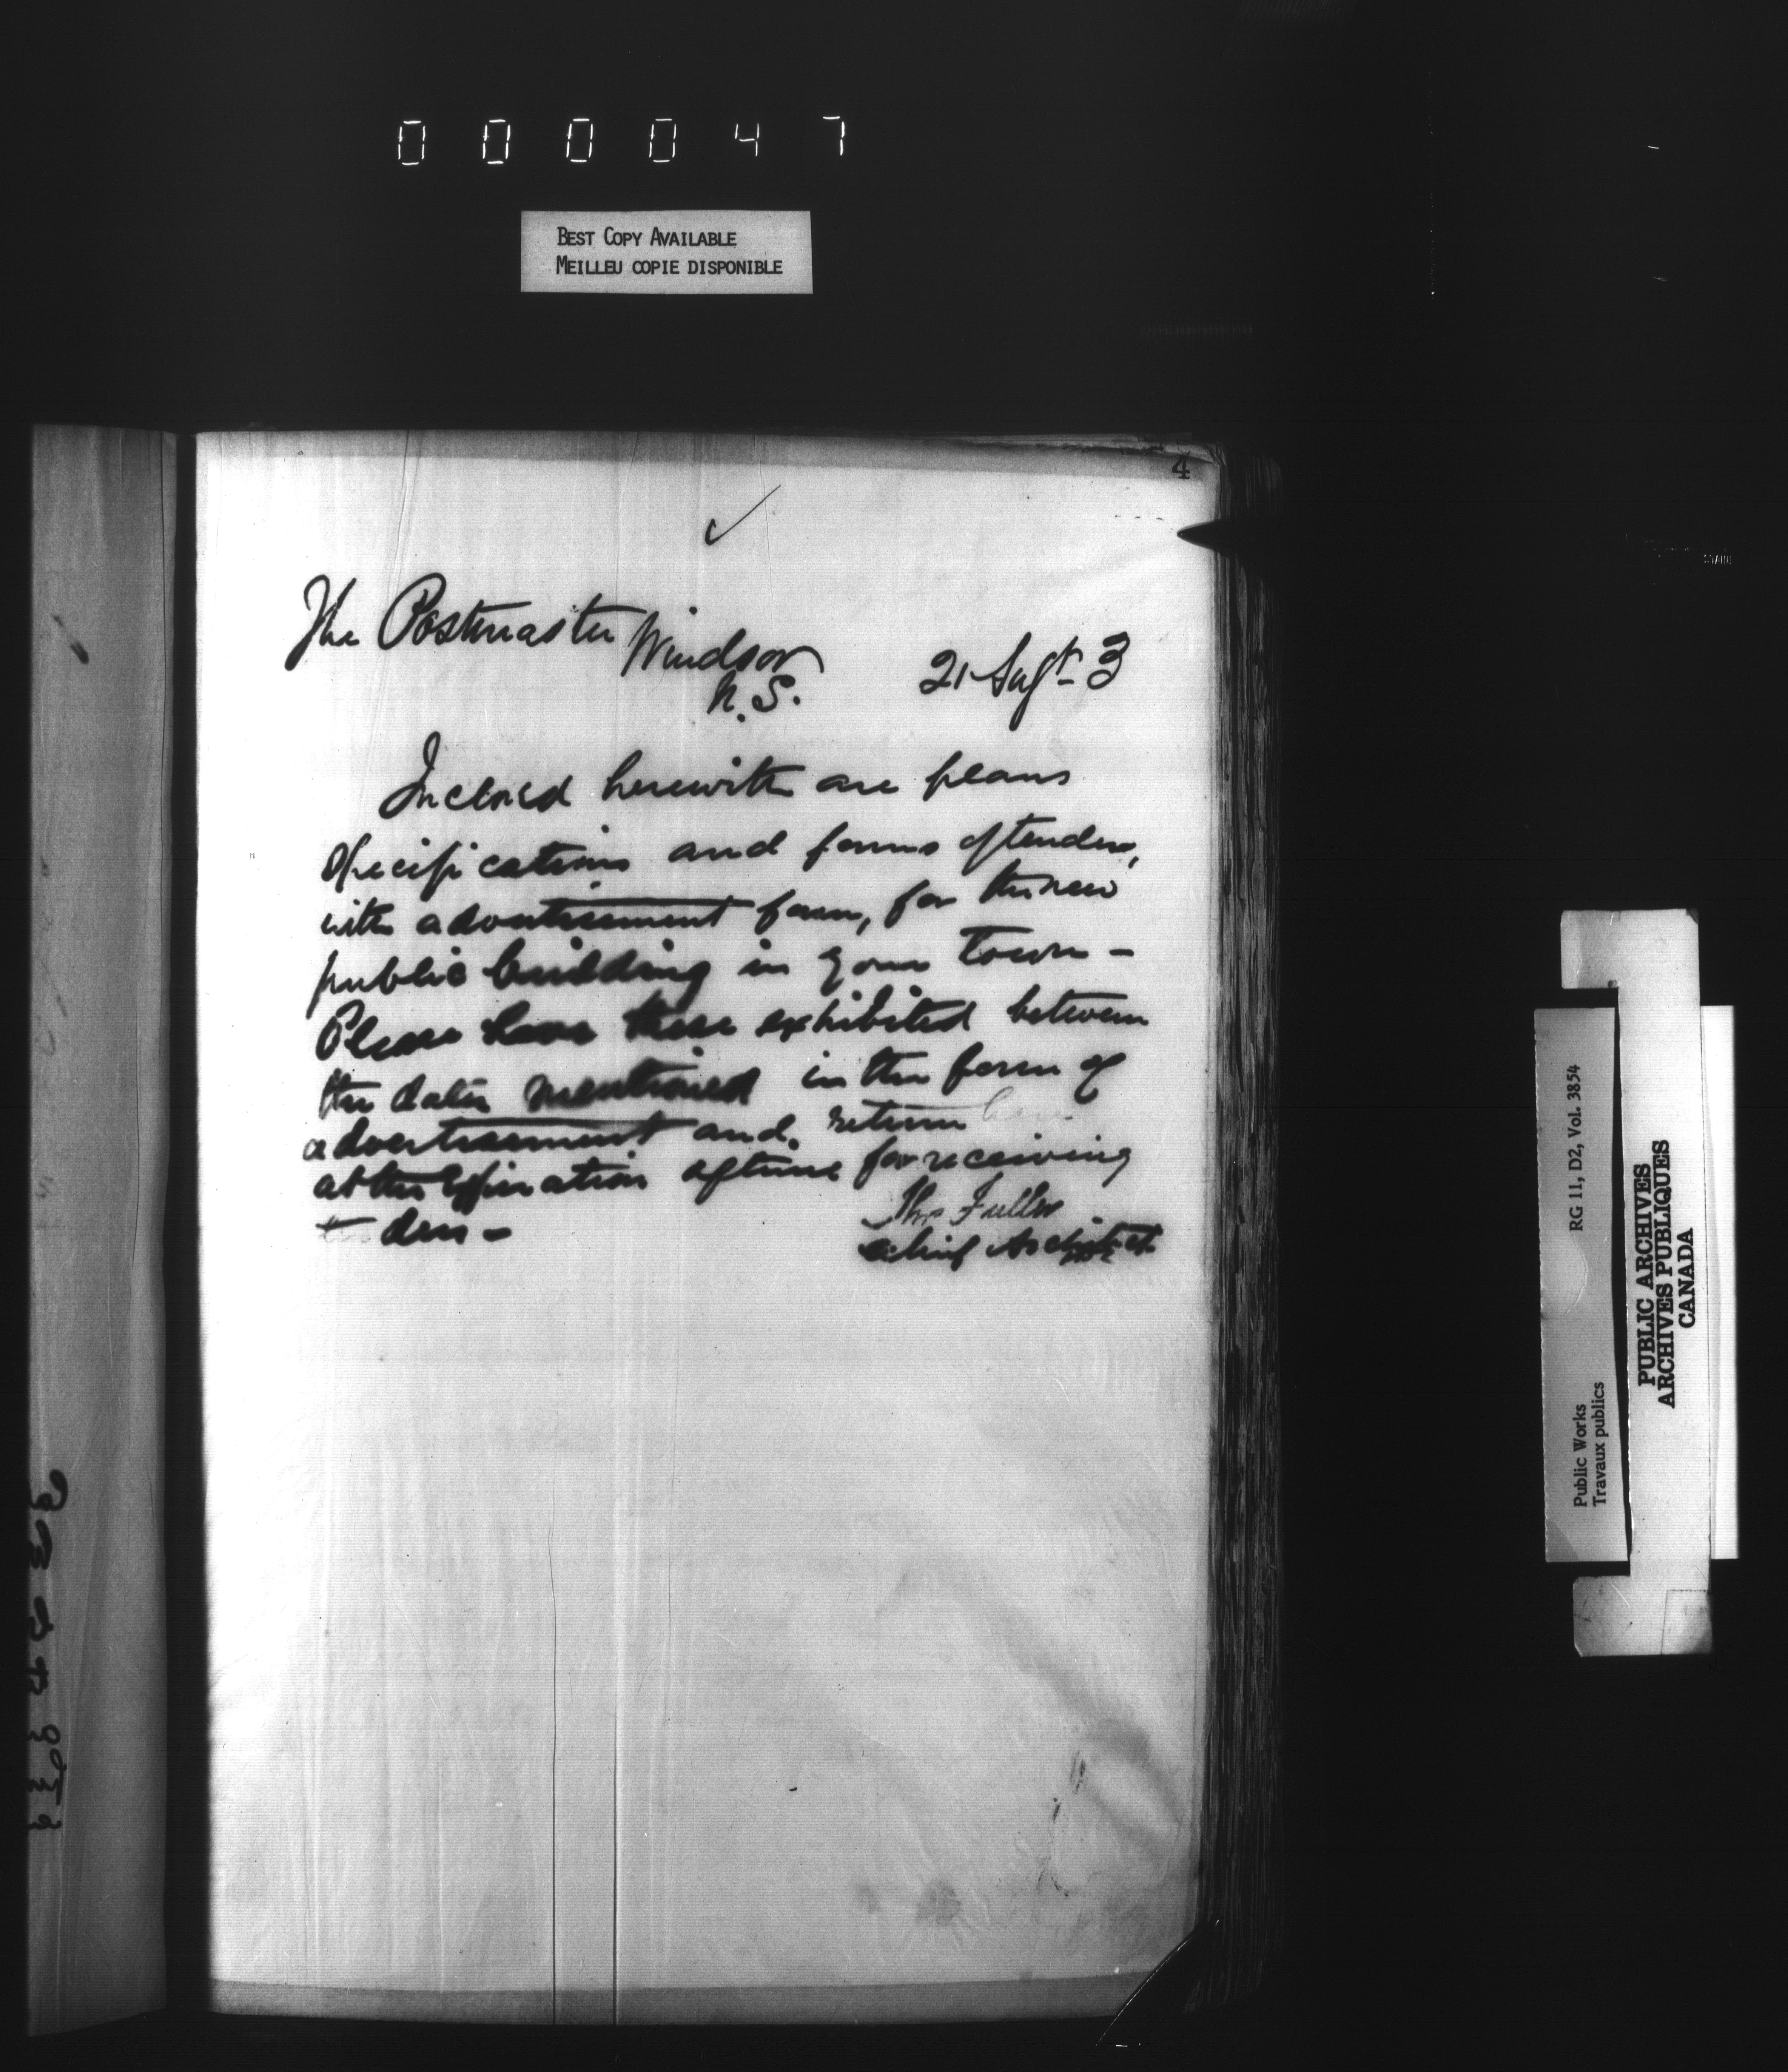 000047
BEST COPY AVAILABLE
MEILLEU COPIE DISPONIBLE
4
The Postmaster Windsor
N.S.
21 Augt- 3
Inclosed herewith are plans
specifications and forms of tenders,
with advertisement form, for the new
public building in your town -
Please have these exhibited between
the dates mentioned in the form of
advertisement and return here
at the expiration of time for receiving
tenders -
Thos Fuller
Chief Architect
Public Works
Travaux publics
RG 11, D2, Vol. 3854
PUBLIC ARCHIVES
ARCHIVES PUBLIQUES
CANADA